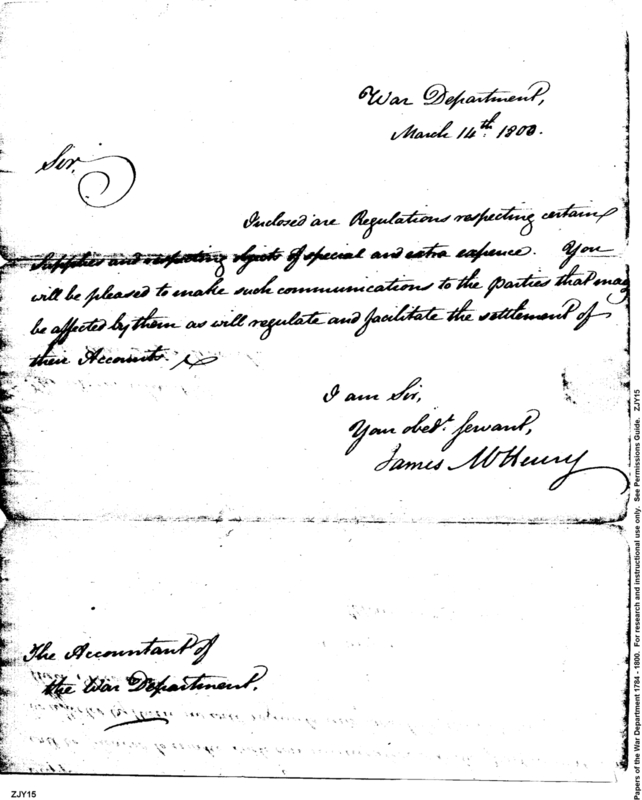 War Department,
March 14th. 1800.
Sir,
Inclosed are Regulations respecting certain
Supplies and respecting objects of special and extra expence. You
will be pleased to make such communications to the parties that may
be affected by them as will regulate and facilitate the settlement of
their Accounts.
I am Sir,
Your obedt. Servant,
James McHenry
The Accountant of
the War Department.
ZJY15
Papers of the War Department 1784 - 1800. For research and instructional use only. See Permissions Guide. ZJY15